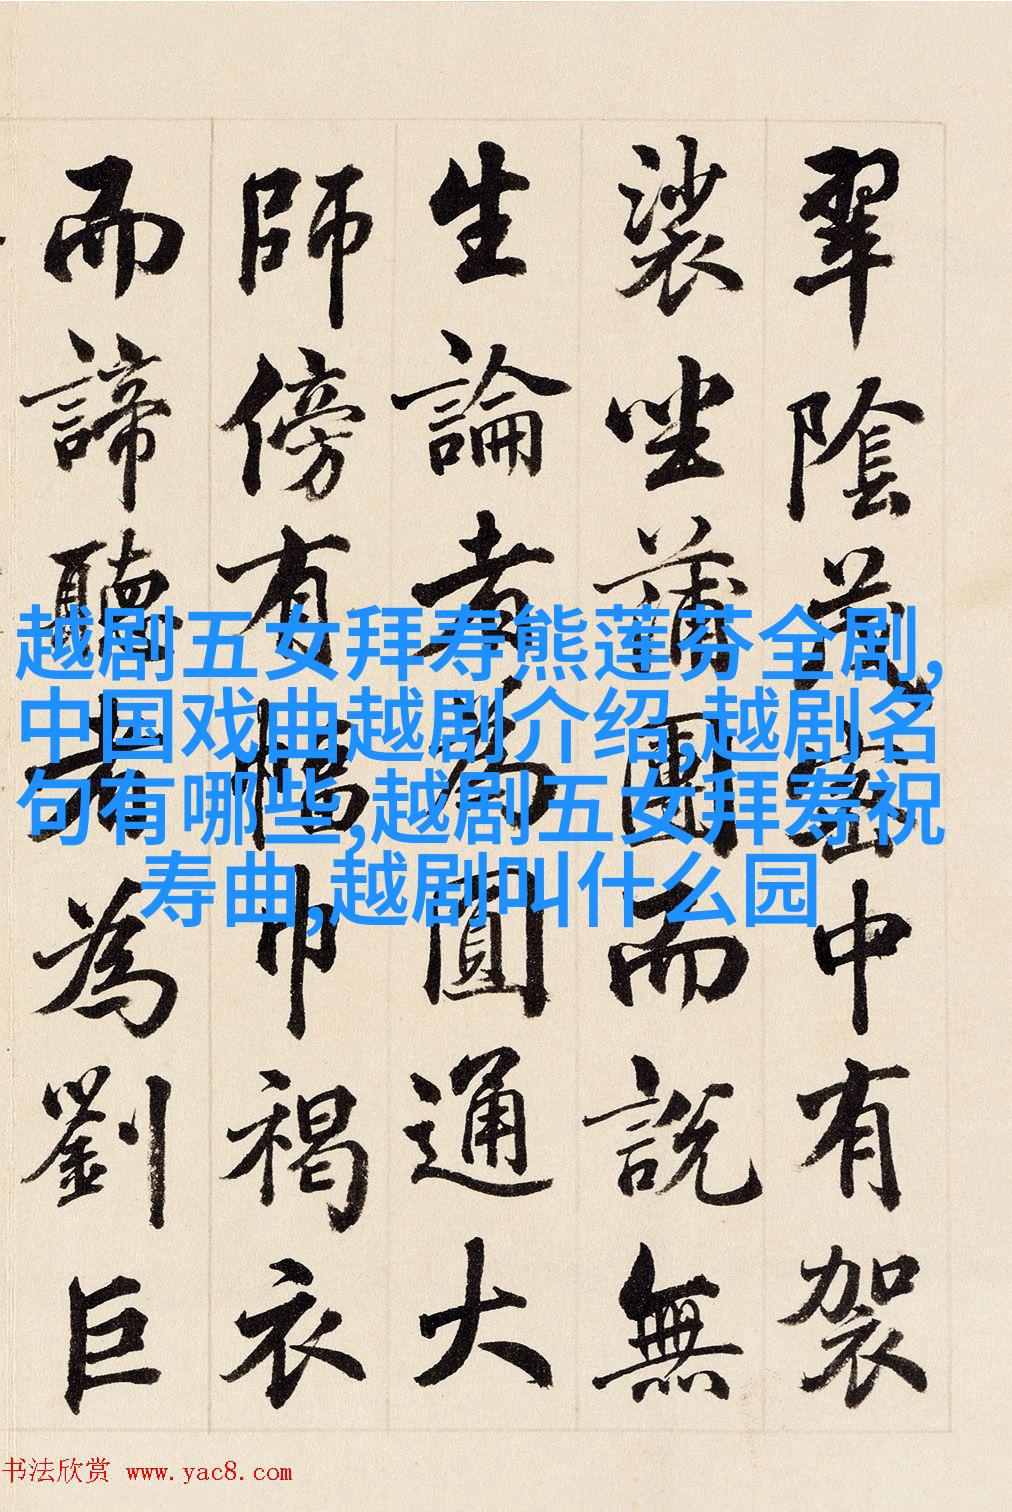 翠陰茂密中有袈
裟坐蒲團而說無
生論者為圓通大
師傍有幅巾褐衣
而諦聽者為劉巨
越剧五女拜寿熊莲芬全剧,
中国戏曲越剧介绍,越剧名
句有哪些,越剧五女拜寿祝
寿曲,越剧叫什么园
书法欣赏 www.yac8.com